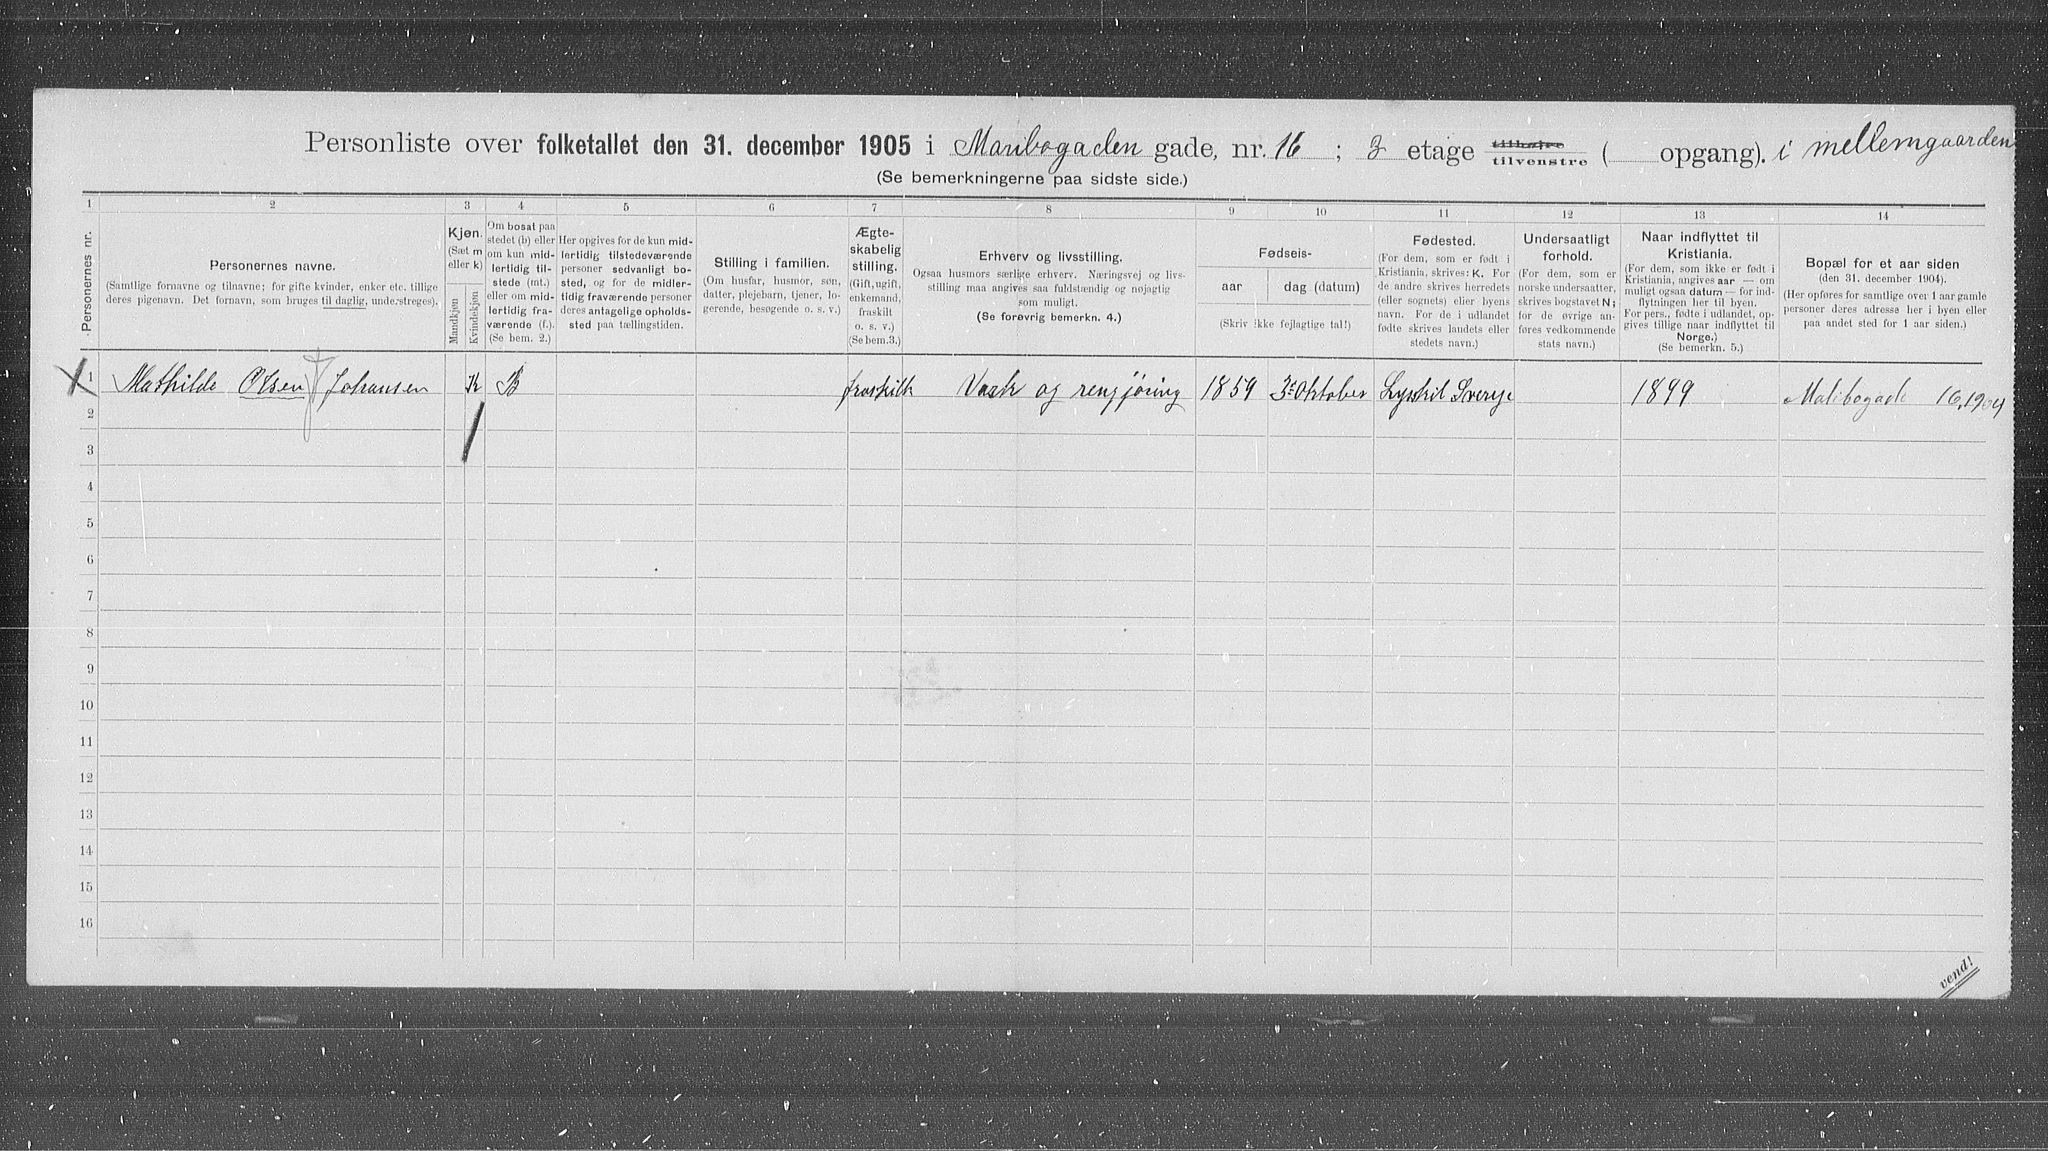 Personliste over folketallet den 31. december 1905 i Maribogaden gade, nr. 16 ; 3 etage tilhøjre tilvenstre ( opgang). i mellemgaarden
(Se bemerkningerne paa sidste side.)
1 2 3 4 5 6 7 8 9 10 11 12 13 14
Personernes nr.
Personernes navne.
(Samtlige fornavne og tilnavne; for gifte kvinder, enker etc. tillige
deres pigenavn. Det fornavn, som bruges til daglig, understreges).
Kjøn.
(Sæt m
eller k)
Mandkjøn
Kvindekjøn
Om bosat paa
stedet (b) eller
om kun mid-
lertidig til-
stede (mt.)
eller om mid-
lertidig fra-
værende (f.).
(Se bem. 2.)
Her opgives for de kun mid-
lertidig tilstedeværende
personer sedvanligt bo-
sted, og for de midler-
tidig fraværende personer
deres antagelige opholds-
sted paa tællingstiden.
Stilling i familien.
(Om husfar, husmor, søn,
datter, plejebarn, tjener, lo-
gerende, besøgende o. s. v.)
Ægte-
skabelig
stilling.
(Gift, ugift,
enkemand,
fraskilt
o. s. v.)
(Se bem.3.)
Erhverv og livsstilling.
Ogsaa husmors særlige erhverv. Næringsvej og livs-
stilling maa angives saa fuldstændig og nøjagtig
som muligt.
(Se forøvrig bemerkn. 4.)
Fødsels-
aar
dag (datum)
(Skriv ikke fejlagtige tal!)
Fødested.
(For dem, som er født i
Kristiania, skrives: K. For
de andre skrives herredets
(eller sognets) eller byens
navn. For de i udlandet
fødte skrives landets eller
stedets navn.)
Undersaatligt
forhold.
(For dem, som er
norske undersaatter,
skrives bogstavet N;
for de øvrige an-
føres vedkommende
stats navn.)
Naar indflyttet til
Kristiania.
(For dem, som ikke er født i
Kristiania, angives aar — om
muligt ogsaa datum — for ind-
flytningen her til byen.
For pers., fødte i udlandet, op-
gives tillige naar indflyttet til
Norge.)
(Se bemerkn. 5.)
Bopæl for et aar siden
(den 31. december 1904).
(Her opføres for samtlige over 1 aar gamle
personer deres adresse her i byen eller
paa andet sted for 1 aar siden.)
1 Mathilde Olsen Johansen K B fraskilt Vask og rengjøring 1859 3. Oktober Lyskil Sverje 1899 Malibogade 16, 1904
2
3
4
5
6
7
8
9
10
11
12
13
14
15
16
vend!